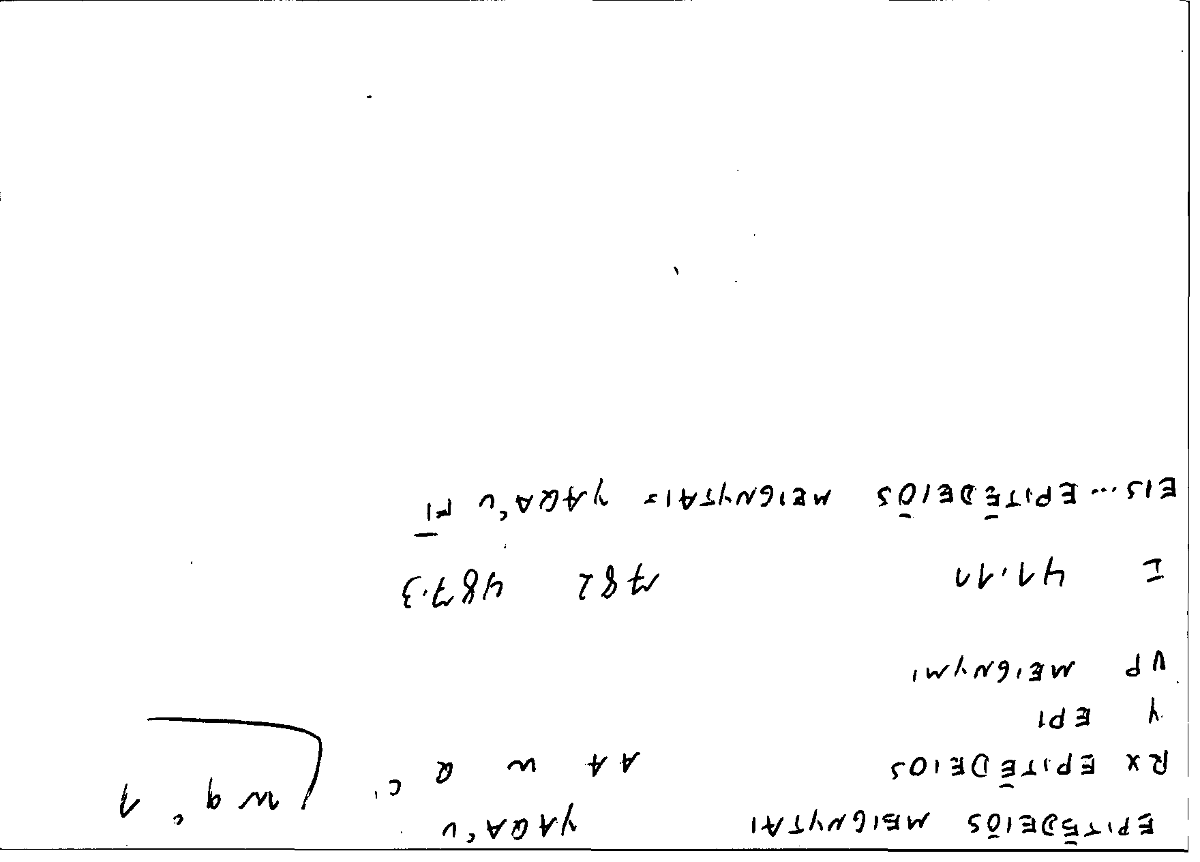 EPITĒDEIŌS MEIGNYTAI yAQAʿu
w q ʿ 1
RX EPITĒDEIOS AA w Q ʿ
Y EPI
VP MEIGNYMI
I 41.11 782 487.3
EIS... EPITĒDEIŌS MEIGNYTAI= yAQAʿu FI